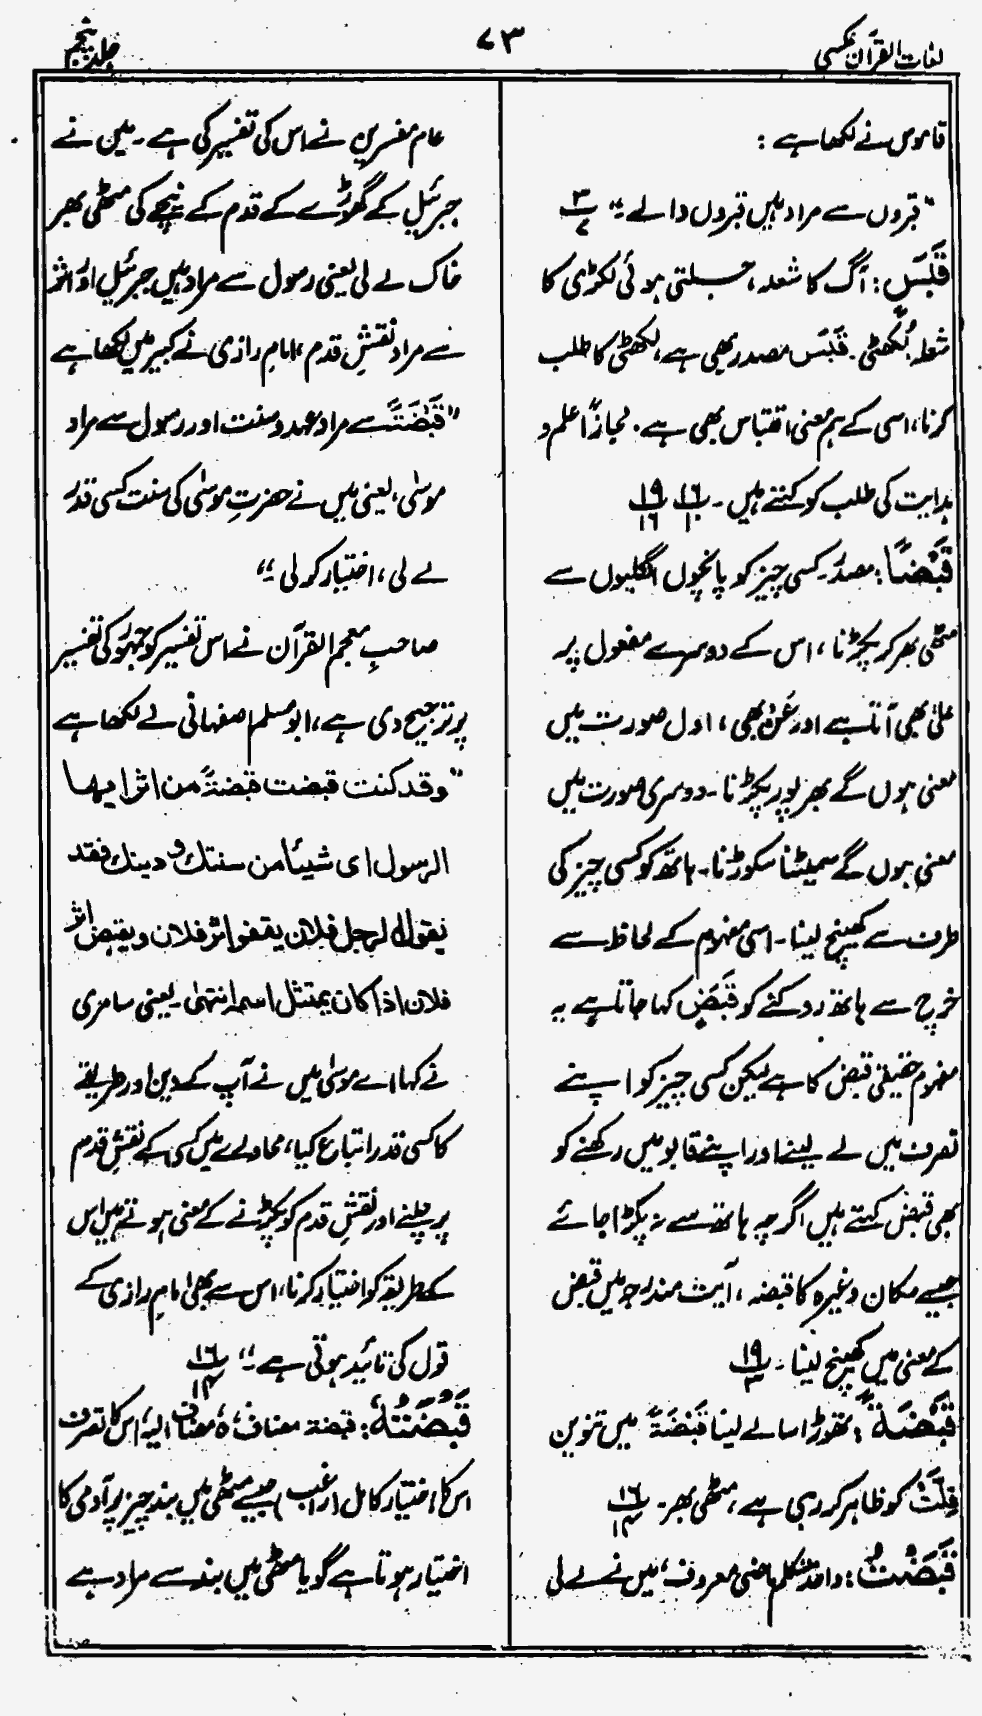 لغات القرآن عکسی
۷۳
جلد پنجم
قاموس نے لکھا ہے :
"قبروں سے مراد ہیں قبروں والے۔" ۳/۷
قَبَسٍ : آگ کا شعلہ، جلتی ہوئی لکڑی کا
شعلہ لکھٹی۔ قَبَس مصدر بھی ہے، لکھٹی کا طلب
کرنا، اسی کے ہم معنی اقتباس بھی ہے۔ مجازاً علم و
ہدایت کی طلب کو کہتے ہیں۔ ۱۶/۱۰ ۱۹/۱۶
قَبْضًا : مصدر۔ کسی چیز کو پانچوں انگلیوں سے
مٹھی بھر کر پکڑنا، اس کے دوسرے مفعول پر
علیٰ بھی آتا ہے اور عَنْ بھی، اول صورت میں
معنی ہوں گے بھرپور پکڑنا۔ دوسری صورت میں
معنی ہوں گے سمیٹنا سکوڑنا۔ ہاتھ کو کسی چیز کی
طرف سے کھینچ لینا۔ اسی مفہوم کے لحاظ سے
خرچ سے ہاتھ روکنے کو قَبَضَ کہا جاتا ہے یہ
مفہوم حقیقی قبض کا ہے لیکن کسی چیز کو اپنے
تصرف میں لے لینے اور اپنے قابو میں رکھنے کو
بھی قبض کہتے ہیں اگرچہ ہاتھ سے نہ پکڑا جائے
جیسے مکان وغیرہ کا قبضہ، آیت مندرجہ میں قبض
کے معنی میں کھینچ لینا۔ ۱۹/۳
قَبْضَةً : تھوڑا سا لے لینا قَبْضَةً میں تنوین
قِلّت کو ظاہر کر رہی ہے، مٹھی بھر۔ ۱۶/۱۴
قَبَضْتُ : واحد متکلم ماضی معروف، میں نے لے لی
عام مفسرین نے اس کی تفسیر کی ہے۔ میں نے
جبرئیل کے گھوڑے کے قدم کے نیچے کی مٹھی بھر
خاک لے لی یعنی رسول سے مراد ہیں جبرئیل اور اثر
سے مراد نقشِ قدم، امام رازی نے کبیر میں لکھا ہے
"قَبْضَةً سے مراد عہد و سنت اور رسول سے مراد
موسیٰ، یعنی میں نے حضرتِ موسیٰ کی سنت کسی قدر
لے لی، اختیار کر لی۔"
صاحبِ معجم القرآن نے اس تفسیر کو جمہور کی تفسیر
پر ترجیح دی ہے، ابو مسلم اصفہانی نے لکھا ہے
"وقد کنت قبضت قبضةً من اثر ایہا
الرسول ای شیئا من سنتك و دینك فقد
یقول الرجل فلان یقفو اثر فلان و یقتبض اثر
فلان اذا کان یمتثل اسمہ انتہیٰ۔ یعنی سامری
نے کہا اے موسیٰ میں نے آپ کے دین اور طریقے
کا کسی قدر اتباع کیا، محاورے میں کسی کے نقشِ قدم
پر چلنے اور نقشِ قدم کو پکڑنے کے معنی ہوتے ہیں اس
کے طریقہ کو اختیار کرنا، اس سے بھی امام رازی کے
قول کی تائید ہوتی ہے۔" ۱۶/۱۴
قَبْضَتُهٗ : قبضة مضاف، ہ، مضاف الیہ، اس کا تصرف
اس کا اختیار کامل (راغب) جیسے مٹھی میں بند چیز پر آدمی کا
اختیار ہوتا ہے گویا مٹھی میں بند سے مراد ہے